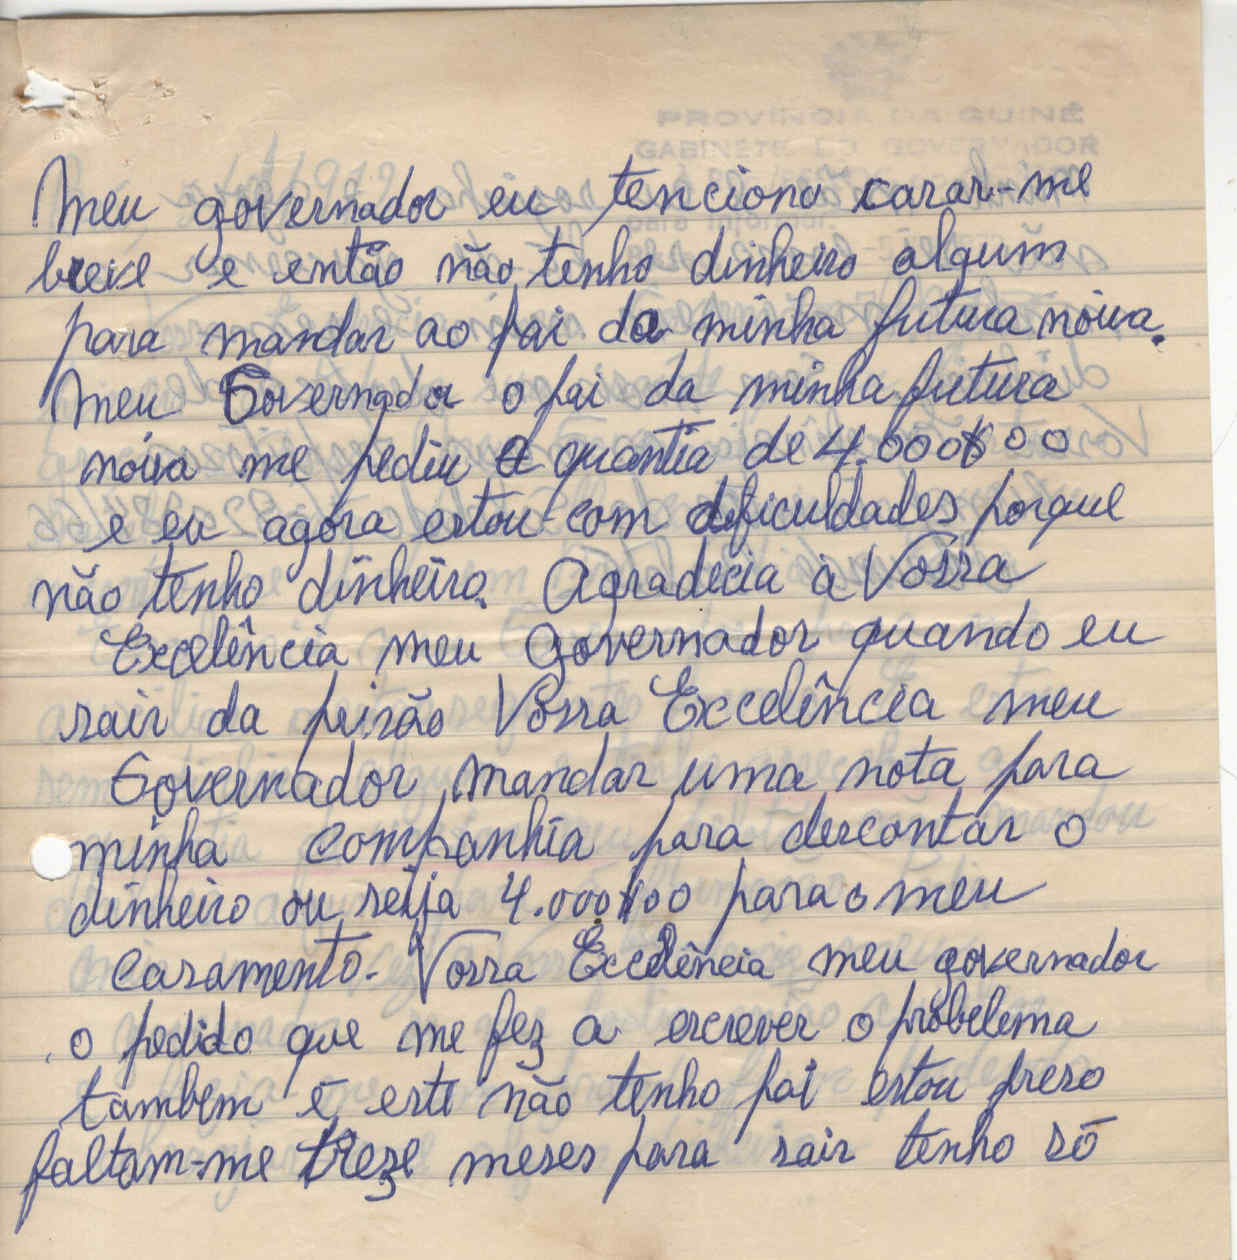 PROVINCIA DA GUINÉ
GABINETE DO GOVERNADOR
Meu governador eu tenciono carar-me
breve e então não tenho dinheiro algum
para mandar ao pai da minha futura noiva.
Meu Governador o pai da minha futura
noiva me pediu a quantia de 4.000$00
e eu agora estou com dificuldades porque
não tenho dinheiro. Agradecia à Vossa
Excelência meu Governador quando eu
sair da prisão Vossa Excelência meu
Governador mandar uma nota para
minha companhia para descontar o
dinheiro ou seija 4.000$00 para o meu
casamento. Vossa Excelência meu governador
o pedido que me fez a escrever o probelema
tambem é este não tenho pai estou preso
faltam-me treze meses para sair tenho só